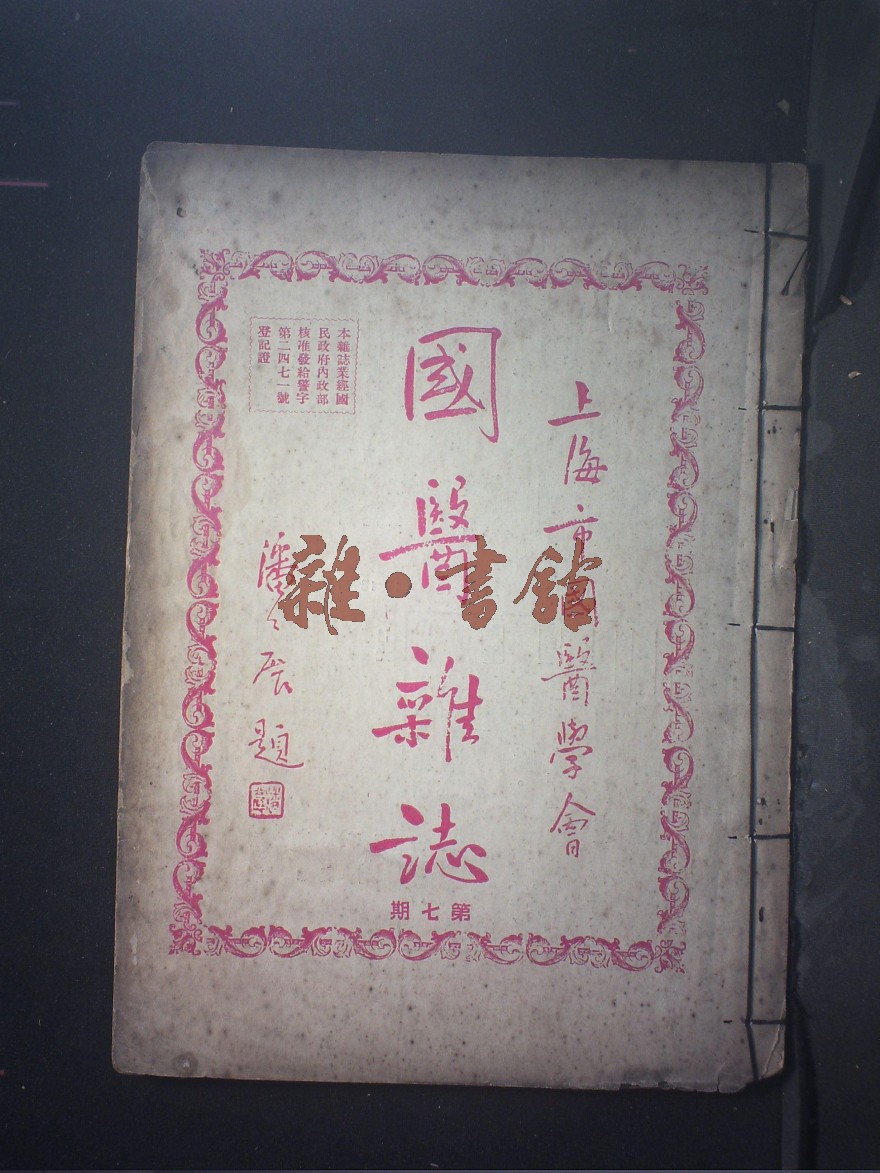 上海市國醫學會
國醫雜誌
第七期
本雜誌業經國
民政府內政部
核准發給警字
第二四七一號
登記證
潘公展題
雜·書館